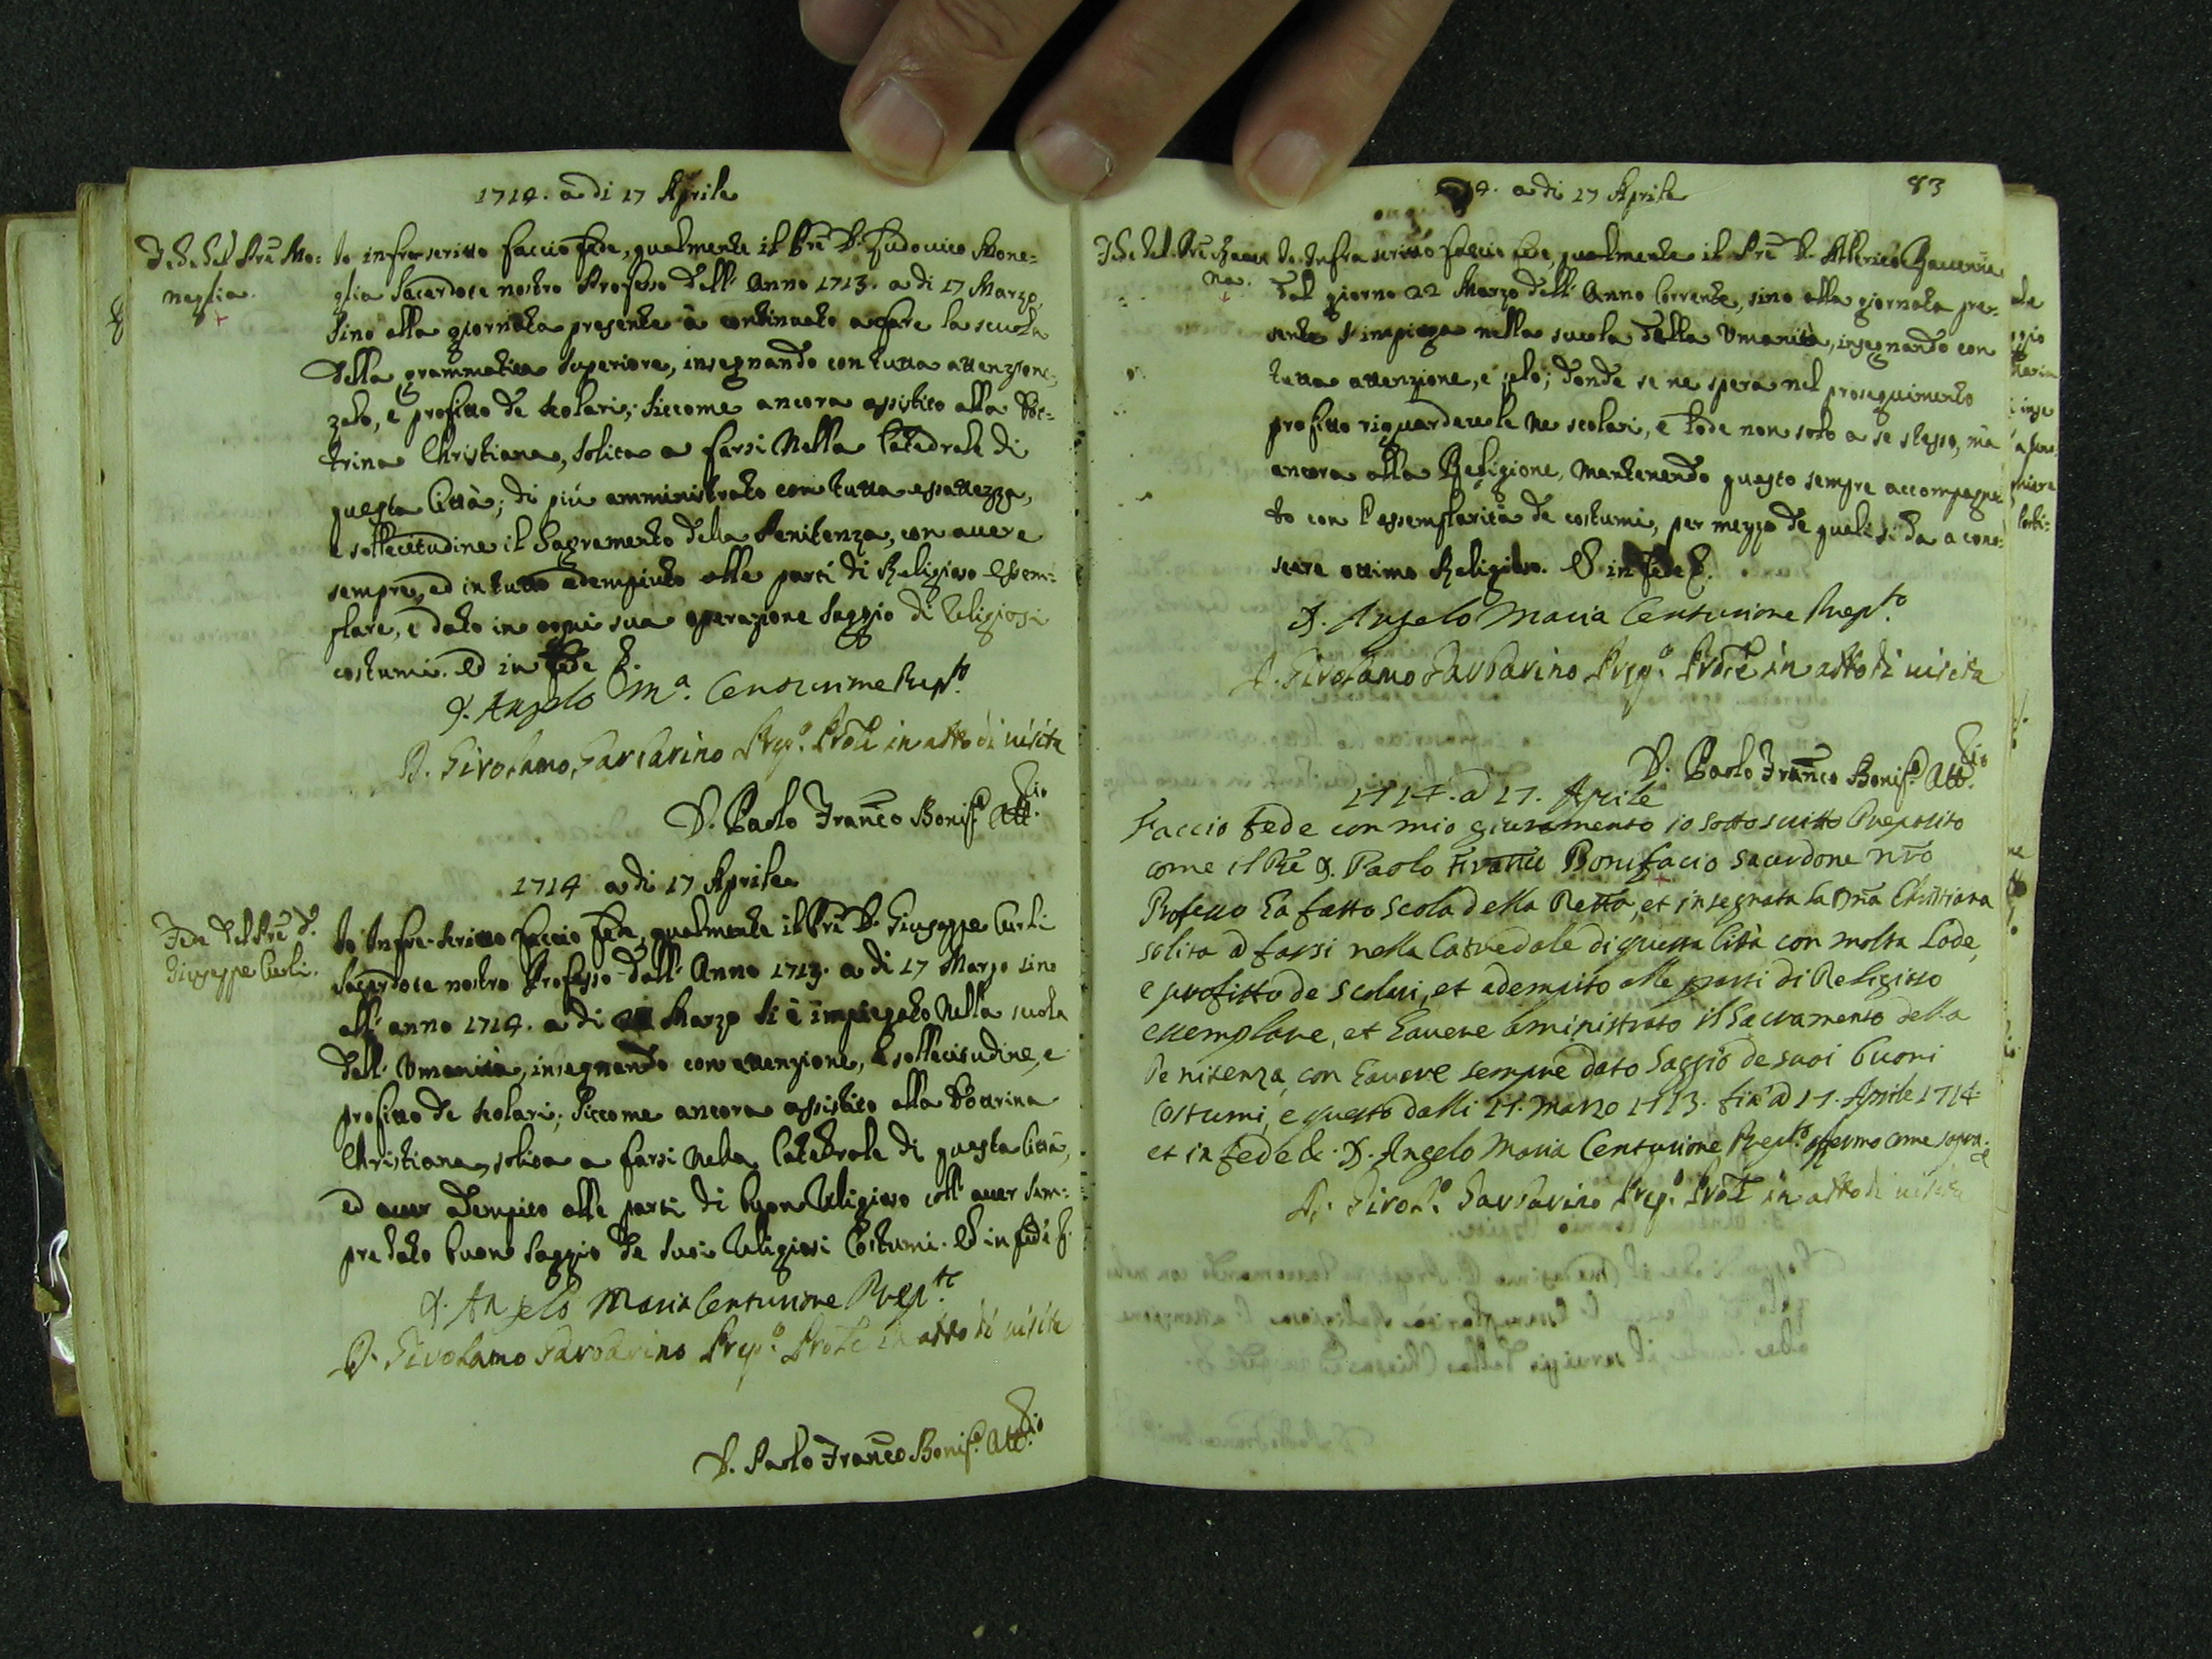 1714. a di 17 Aprile
Fede del Pre Mo:
neglia.
Io infrascritto faccio fede, qualmente il Pre D. Ludovico Mone-
glia Sacerdote nostro Professo dall' Anno 1713. a di 17 Marzo,
sino alla giornata presente à continuato a fare la scuola
della grammatica superiore, insegnando con tutta attenzione,
zelo, e profitto de scolari; siccome ancora assistito alla Dot-
trina Christiana, solita a farsi nella Catedrale di
questa Città; di più amministrato con tutta esattezza,
e sollecitudine il Sagramento della Penitenza, con avere
sempre, ed in tutto adempiuto alle parti di Religioso essem-
plare, e dato in ogni sua operazione saggio di religiosi
costumi. Ed in fede &.
D. Angelo Ma. Centurione Prepto
D. Girolamo Garbarino Prepo. Prōle in atto di visita
D. Paolo Franco Bonifo. Attrio
1714 a di 17 Aprile
Fede del Pre D.
Giuseppe Carli.
Io Infra-scritto faccio fede, qualmente il Pre D. Giuseppe Carli
Sacerdote nostro Professo dall' Anno 1713. a di 17 Marzo sino
all' anno 1714. a di Marzo si è impiegato nella scuola
dell' Umanità, insegnando con attenzione, e sollecitudine, e
profitto de scolari; siccome ancora assistito alla Dottrina
Christiana, solita a farsi nella Catedrale di questa Città,
ed aver adempito alle parti di buon Religioso coll' aver sem-
pre dato buon saggio de suoi religiosi Costumi. Ed in fede &.
D. Angelo Maria Centurione Prepto
D. Girolamo Garbarino Prepo. Prōle in atto di visita
D. Paolo Franco Bonifo. Attrio
83
14. a di 17 Aprile
Fede del Pre
na.
Io Infrascritto faccio fede, qualmente il Pre D. Alberico
dal giorno 22 Marzo dell' Anno Corrente, sino alla giornata pre-
sente s'impiega nella scuola della Umanità, insegnando con
tutta attenzione, e zelo; donde se ne spera nel proseguimento
profitto riguardevole ne scolari, e lode non solo a se stesso, ma
ancora alla Religione, mantenendo questo sempre accompagna
to con l'essemplarità de costumi, per mezzo de quali si da a cono-
scere ottimo Religioso. Ed in fede &.
D. Angelo Maria Centurione Prepto.
D. Girolamo Garbarino Prepo. Prōle in atto di visita
D. Paolo Franco Bonifo. Attrio
1714. a 17. Aprile
Faccio fede con mio giuramento io sottoscritto Preposito
come il Pre D. Paolo Franco Bonifacio sacerdote nro
Professo ha fatto scola della Retta, et insegnata la Dña Christiana
solita a farsi nella Catredale di questa Città con molta lode,
e profitto de scolari, et adempito alle parti di Religioso
essemplare, et havere aministrato il Sacramento della
Penitenza, con havere sempre dato saggio de suoi buoni
costumi, e questo dalli 17. marzo 1713. fin' a 17. Aprile 1714
et in fede &. D. Angelo Maria Centurione Prepto affermo come sopra &
D. Girolo. Garbarino Prepo. Prōle in atto di visita